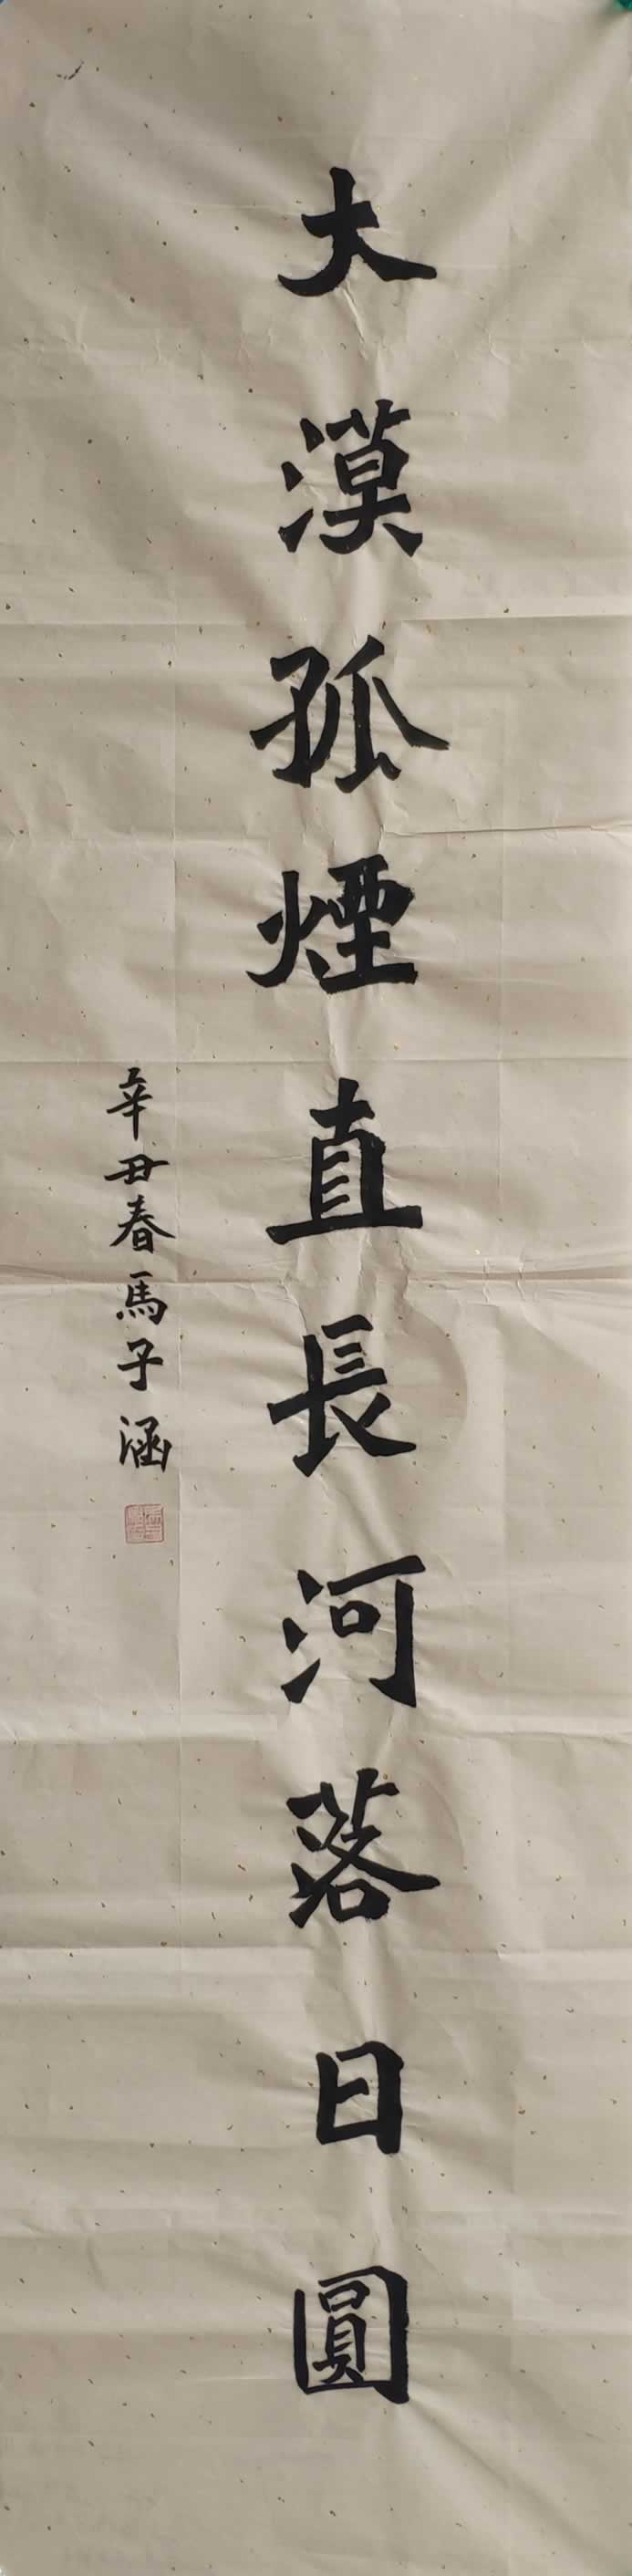 大漠孤煙直長河落日圓
辛丑春馬子涵